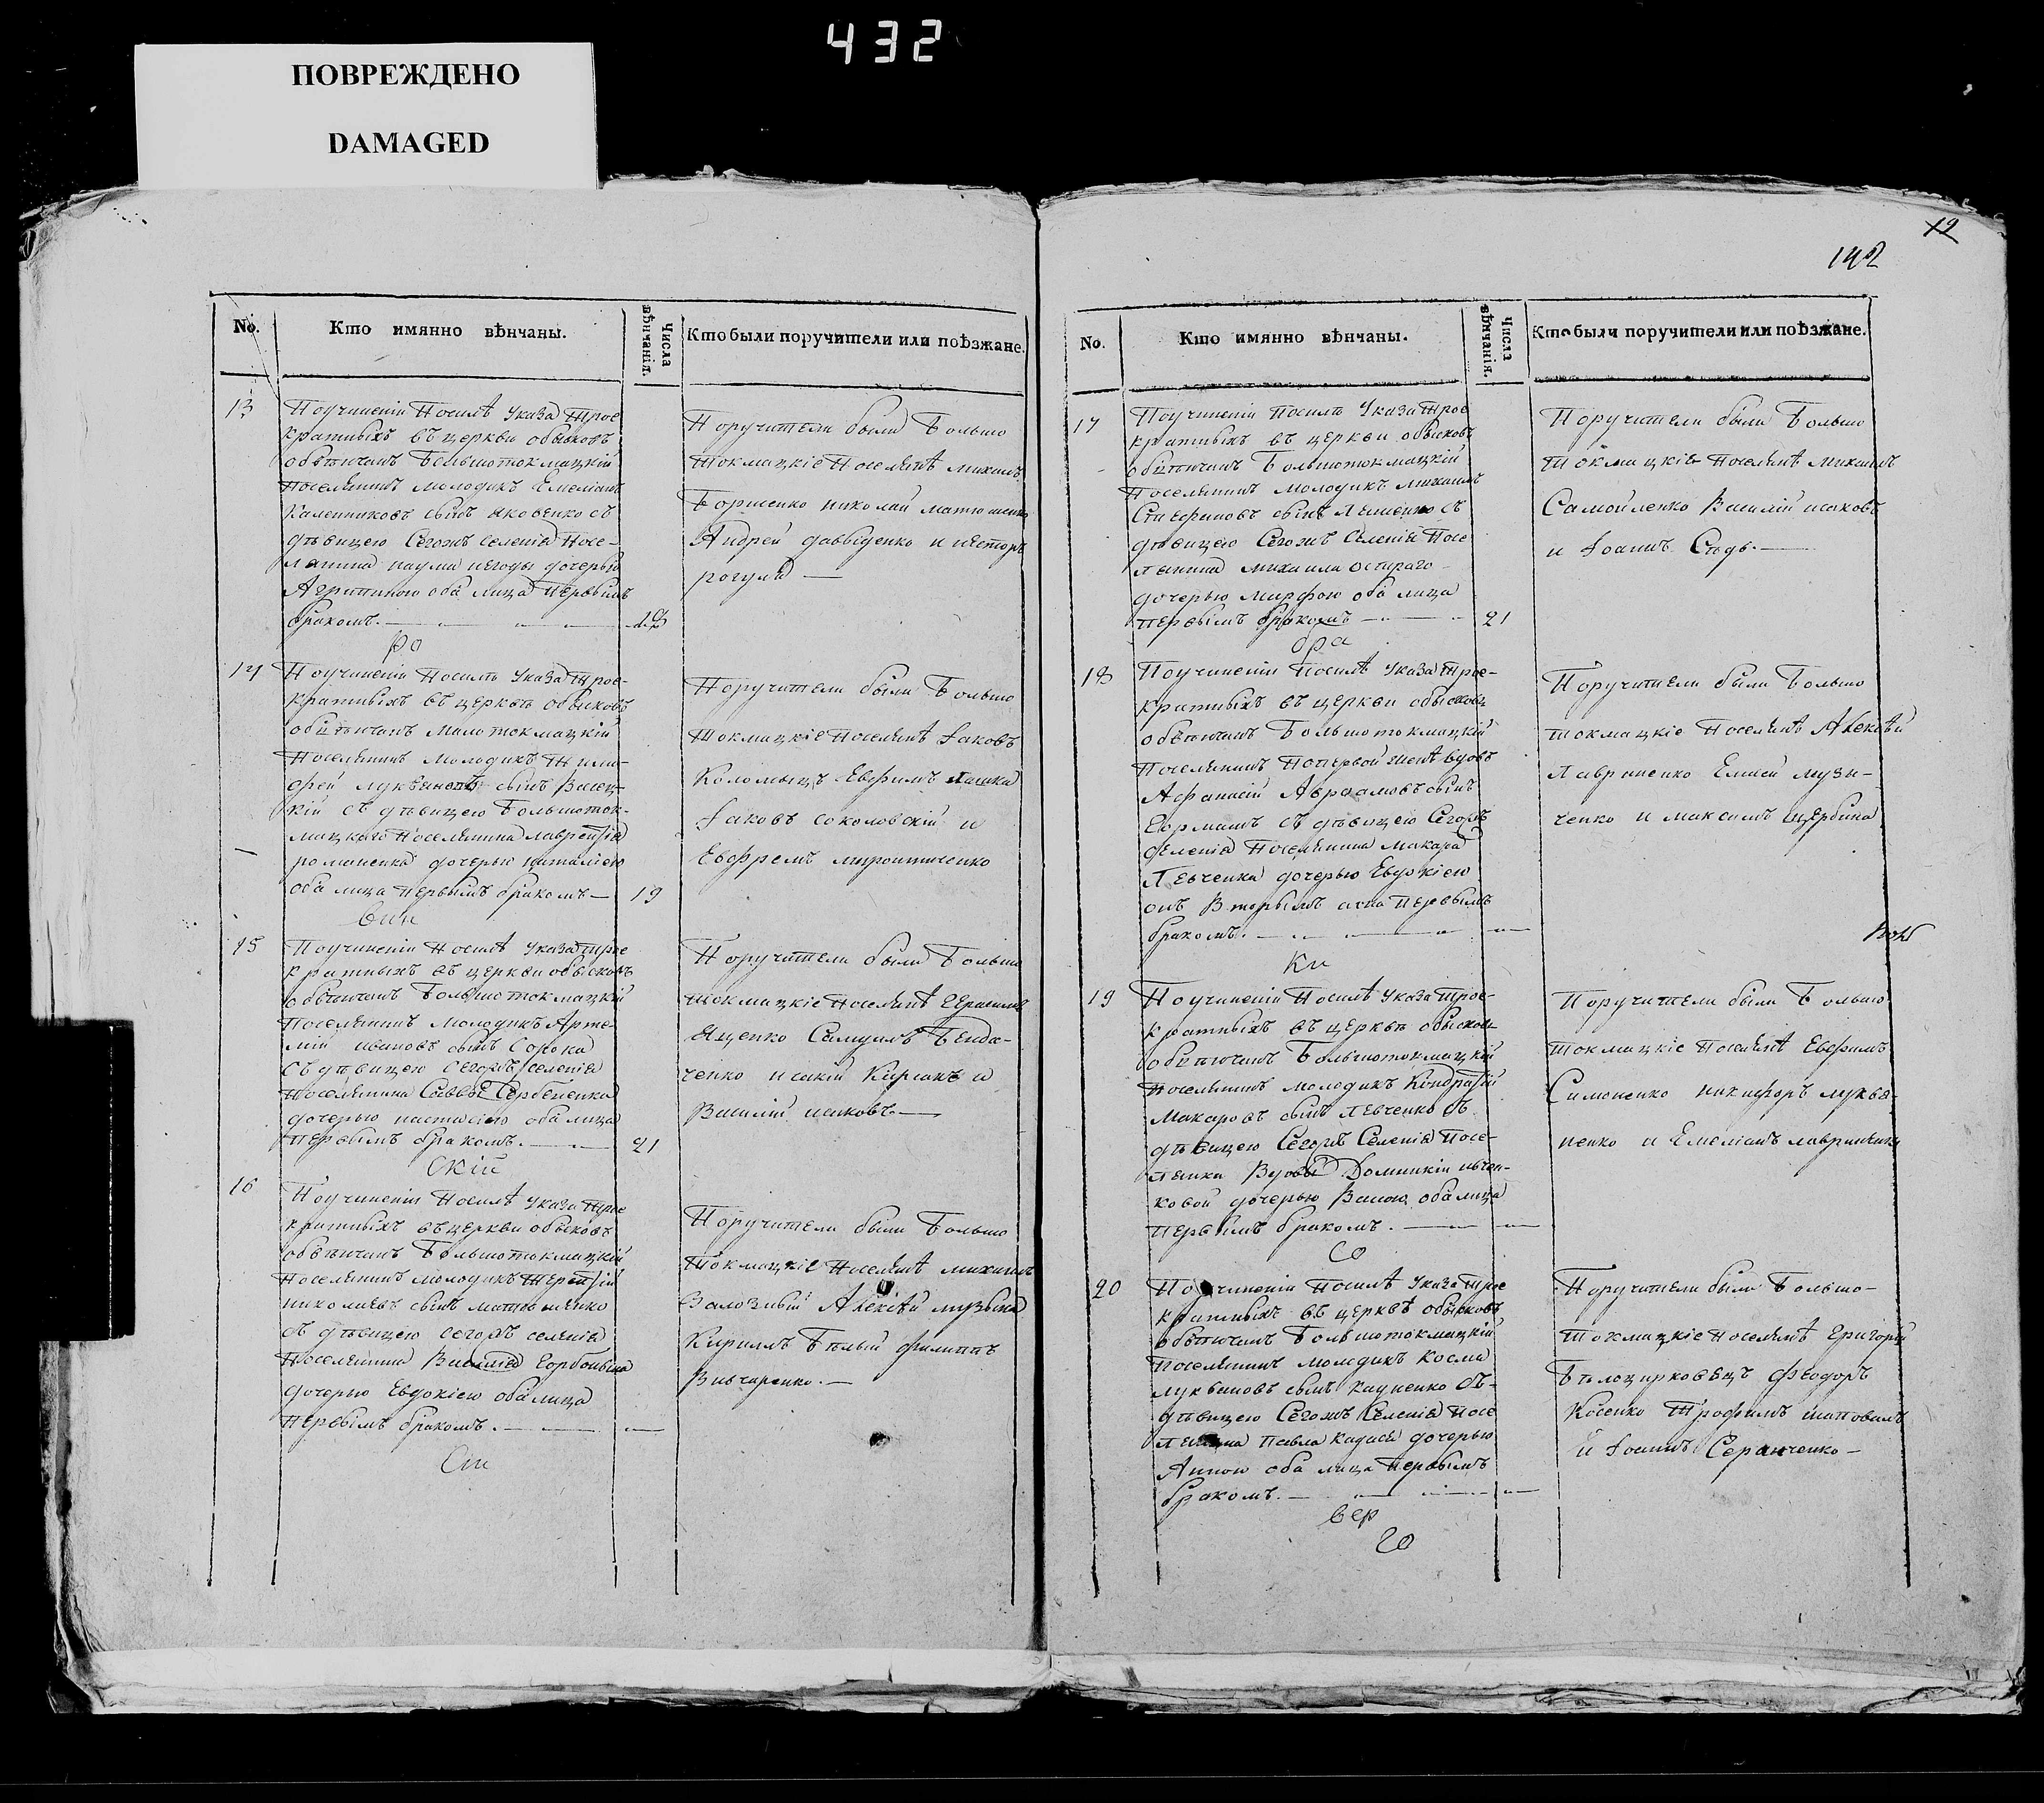 432
ПОВРЕЖДЕНО
DAMAGED
12
142
No.
Кто имянно вѣнчаны.
Числа вѣнчанія.
Кто были поручители или поѣзжане.
13
Поучиненіи Посилѣ Указа Трое
кратныхъ въ церкви обысковъ
обвѣнчанъ Большотокмацкій
Поселянинъ молодикъ Емеліанъ
сынъ Яковенко съ
дѣвицею Сегожъ Селенія Посе-
лянина наума негоды дочерью
Агрипиною оба лица Первымъ
бракомъ.
Поручители были Большо
Токмацкіе Поселянѣ михаилъ
Борисенко николай матюшенко
Андрей давыденко и нѣсторъ
рогуля —
ро
14
Поучиненіи Посилѣ Указа Трое-
кратныхъ въ церкви обысковъ
обвѣнчанъ малотокмацкій
Поселянинъ молодикъ Тимо-
фей сынъ
кій съ дѣвицею Большоток-
мацкаго Поселянина лаврентія
романенка дочерью наталіею
оба лица Первымъ бракомъ — 19
Поручители были Большо
Токмацкіе Поселянѣ Іаковъ
Коломыцъ Евфимъ
Іаковъ соколовскій и
Евфремъ миронтиченко
вин
15
Поучиненіи Посилѣ Указа Трое
кратныхъ въ церкви обысковъ
обвѣнчанъ Большотокмацкій
Поселянинъ молодикъ Арте-
мій ивановъ сынъ Сорока
съ дѣвицею Сегожъ селенія
Поселянина Саввы Сербененка
дочерью настасіею оба лица
Первымъ бракомъ. — 21
Поручители были Большо
токмацкіе Поселянѣ Герасимъ
Яценко Самуилъ Бонда-
ренко исакій Кирсанъ и
Василій исаковъ. —
скій
16
Поучиненіи Посилѣ Указа Трое
кратныхъ въ церкви обысковъ
обвѣнчанъ Большотокмацкій
Поселянинъ молодикъ Терентій
николаевъ сынъ матюшенко
съ дѣвицею сегожъ селенія
Поселянина Василія Горбонька
дочерью Евдокіею оба лица
Первымъ бракомъ. —
Поручители были Большо
Токмацкіе Поселянѣ михаилъ
Заложный Алексѣй музыка
Кирилъ Бѣлый филиппъ
Вивчаренко. —
Сти
No.
Кто имянно вѣнчаны.
Числа вѣнчанія.
Кто были поручители или поѣзжане.
17
Поучиненіи Посилѣ Указа Трое
кратныхъ въ церкви обысковъ
обвѣнчанъ Большотокмацкій
Поселянинъ молодикъ михаилъ
Стефановъ сынъ Лященко съ
дѣвицею Сегожъ Селенія Посе
лянина михаила остраго
дочерью марфою оба лица
первымъ бракомъ — 21
Поручители были Большо
токмацкіе поселянѣ михаилъ
Самойленко Василій исаковъ
и Іоаннъ Сѣдь. —
ора
18
Поучиненіи Посилѣ Указа Трое-
кратныхъ въ церкви обысковъ
обвѣнчанъ Большотокмацкій
Поселянинъ Попервой женѣ вдовъ
Афанасій Авраамовъ сынъ
съ дѣвицею Сегожъ
селенія Поселянина макара
Левченка дочерью Евдокіею
онъ Вторымъ аона Первымъ
бракомъ. —
Поручители были Большо
токмацкіе Поселянѣ Алексѣй
Лавриненко Елисей музи-
ченко и максимъ щербина
ки
19
Поучиненіи Посилѣ Указа Трое-
кратныхъ въ церкви обысков
обвѣнчанъ Большотокмацкій
Поселянинъ молодикъ Кондратій
макаровъ сынъ Левченко съ
дѣвицею Сегожъ Селенія Посе-
лянки Вдовы Домникіи
ковой дочерью Васою оба лица
первымъ бракомъ. —
Поручители были Большо
токмацкіе Поселянѣ Евфимъ
Симоненко никифоръ лукья-
ненко и Емеліанъ лавриненко
со
20
Поучиненіи Посилѣ Указа Трое
кратныхъ въ церквѣ обысковъ
обвѣнчанъ Большотокмацкій
Поселянинъ молодикъ Косма
лукьяновъ сынъ Кауненко съ-
дѣвицею Сегожъ Селенія Посе
лянина Павла дочерью
Анною оба лица Первымъ
бракомъ. —
Поручители были Большо-
Токмацкіе Поселянѣ Григорій
Бѣлоцерковецъ Феодоръ
Косенко Трофимъ шаповалъ
и Іоаннъ Серанченко —
вер
20